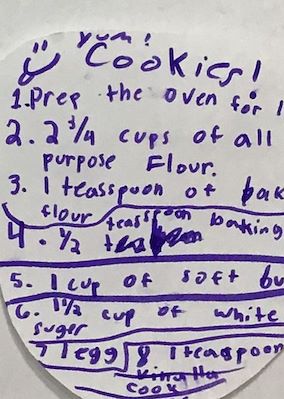 yum!
Cookies!
1. Prep the oven for
2. 2 3/4 cups of all
purpose Flour.
3. 1 teasspoon of bak
flour
4. 1/2 teasspoon baking
5. 1 cup of soft bu
6. 1 1/2 cup of white
suger
7 1 egg 8 1 teaspoon
cook